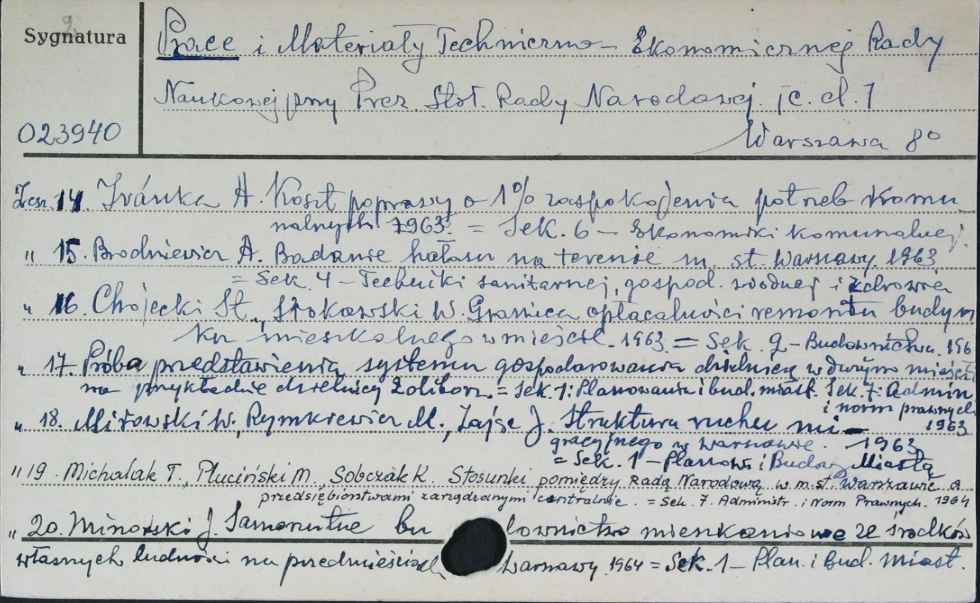 Sygnatura
Prace i Materiały Techniczno - Ekonomicznej Rady
Naukowej przy Prez. Stoł. Rady Narodowej. [c. d. 1
023940
Warszawa 8°
Zesz. 14. Ivánka A. Koszt poprawy o 1% zaspokojenia potrzeb komu
nalnych 1963. = Sek. 6 - Ekonomiki komunalnej.
" 15. Brodniewicz A. Badanie hałasu na terenie m. st. Warszawy. 1963
= Sek. 4 - Techniki sanitarnej, gospod. wodnej i zdrowia
" 16. Chojecki St., Srokowski W. Granica opłacalności remontu budyn
ku mieszkalnego w mieście. 1963. = Sek. 2 - Budownictwa. 196
" 17. Próba przedstawienia systemu gospodarowania dzielnicą w dużym mieście
na przykładzie dzielnicy Żoliborz. = Sek. 1: Planowanie i bud. miast. Sek. 7: Admin
i norm prawnych
1963
" 18. Mirowski W., Rymkiewicz M., Zajse J. Struktura ruchu mi-
gracyjnego w Warszawie. 1963
= Sek. 1 - Planow. i Budow. Miasta
" 19. Michalak T., Pluciński M., Sobczak K. Stosunki pomiędzy Radą Narodową w m. st. Warszawie a
przedsiębiorstwami zarządzanymi centralnie. = Sek. 7. Administr. i Norm Prawnych. 1964
" 20. Minorski J. Samorzutne bu downictwo mieszkaniowe ze środków
własnych ludności na przedmieściach Warszawy. 1964 = Sek. 1 - Plan. i Bud. Miast.